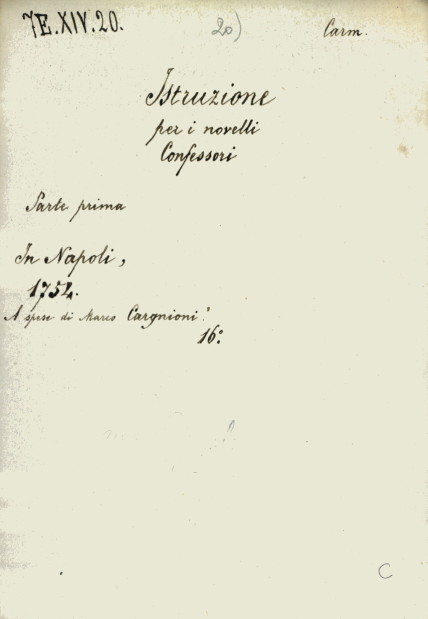 7E.XIV.20.
20)
Carm.
Istruzione
per i novelli
Confessori
Parte prima
In Napoli,
1754.
A spese di Marco Cargnioni.
16°.
C